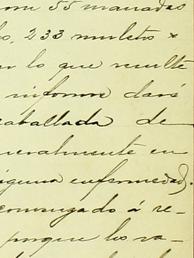 com 55 manadas
o, 233 muletos x
or lo que resulte
informe dará
caballada de
neralmente en
alguna enfermedad.
comenzado á re-
porque los va-